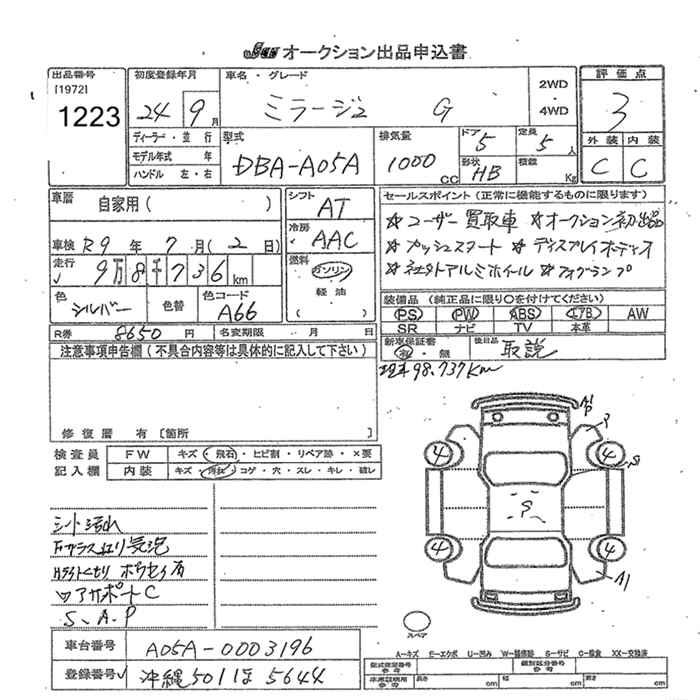 JU オークション出品申込書
出品番号 [1972] 1223
初度登録年月 24 9月
車名・グレード ミラージュ G
2WD・4WD
評価点 3
外装 C 内装 C
ディーラー・並行
モデル年式 年
ハンドル 左・右
型式 DBA-A05A
排気量 1000cc
ドア 5
形状 HB
定員 5人
積載 Kg
車歴 自家用( )
車検 R9年7月(2日)
走行 9万8千736km
シフト AT
冷房 AAC
燃料 ガソリン
軽油
( )
色 シルバー
色替
色コード A66
R券 8650円
名変期限 月 日
セールスポイント(正常に機能するものに限ります)
☆ユーザー買取車 ☆オークション初出品
☆プッシュスタート ☆ディスプレイオーディオ
☆社外アルミホイール ☆フォグランプ
装備品(純正品に限り○を付けてください)
PS PW ABS エアB AW
SR ナビ TV 本革
新車保証書 有・無
後日品 取説
現車98.737Km
注意事項申告欄(不具合内容等は具体的に記入して下さい)
修復歴 有 [箇所 ]
検査員記入欄
FW キズ・飛石・ヒビ割・リペア跡・×要
内装 キズ・汚れ・コゲ・穴・スレ・キレ・破レ
シート汚れ
Fガラス内気泡
Hライトくもり ホウセイ有
コアサポートC
S、A、P
車台番号 A05A-0003196
登録番号 沖縄501ほ5644
A1
P
P
S
4
4
S
4
4
A1
スペア
A-キズ E-エクボ U-凹み W-補修跡 S-サビ C-腐食 XX-交換済
型式指定番号 参考
類別区分番号 参考
車庫証明用 参考
長さ cm
幅 cm
高さ cm